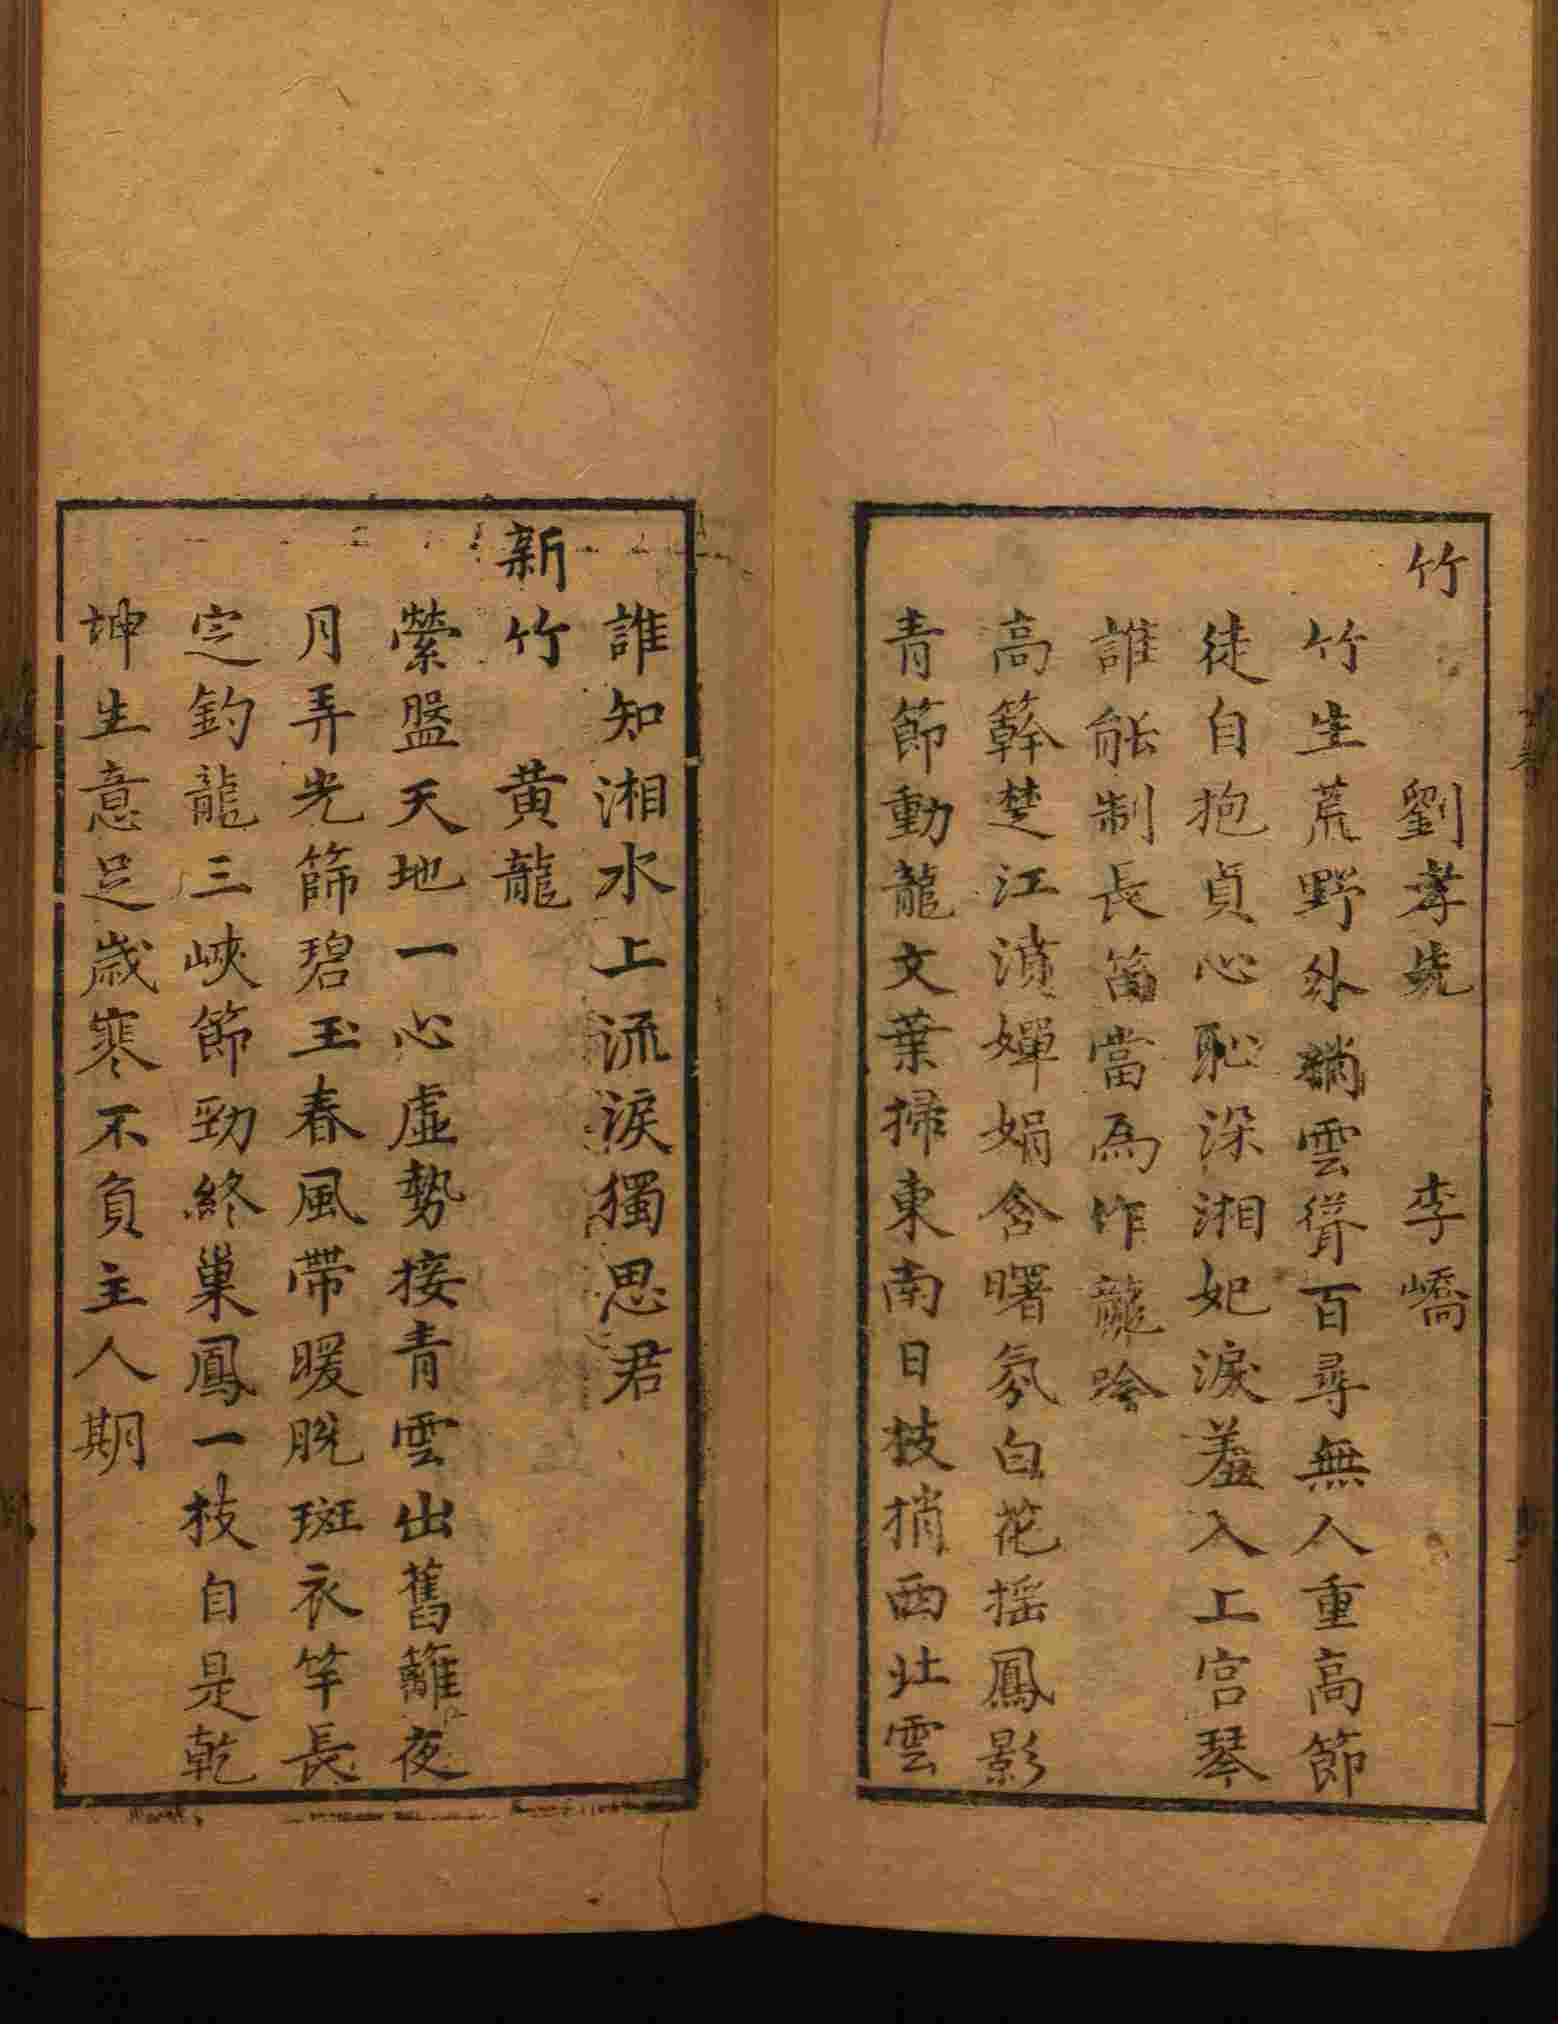 竹　劉孝先　李嶠
竹生荒野外梢雲聳百尋無人重高節
徒自抱貞心恥染湘妃淚羞入上宮琴
誰能制長笛當為作龍吟
高簳楚江濆嬋娟含曙氛白花搖鳳影
青節動龍文葉掃東南日枝捎西北雲
誰知湘水上流淚獨思君
新竹　黃龍
縈盤天地一心虛勢接青雲出舊籬夜
月弄光篩碧玉春風帶暖脫斑衣竿長
定釣龍三峽節勁終巢鳳一枝自是乾
坤生意足歲寒不負主人期